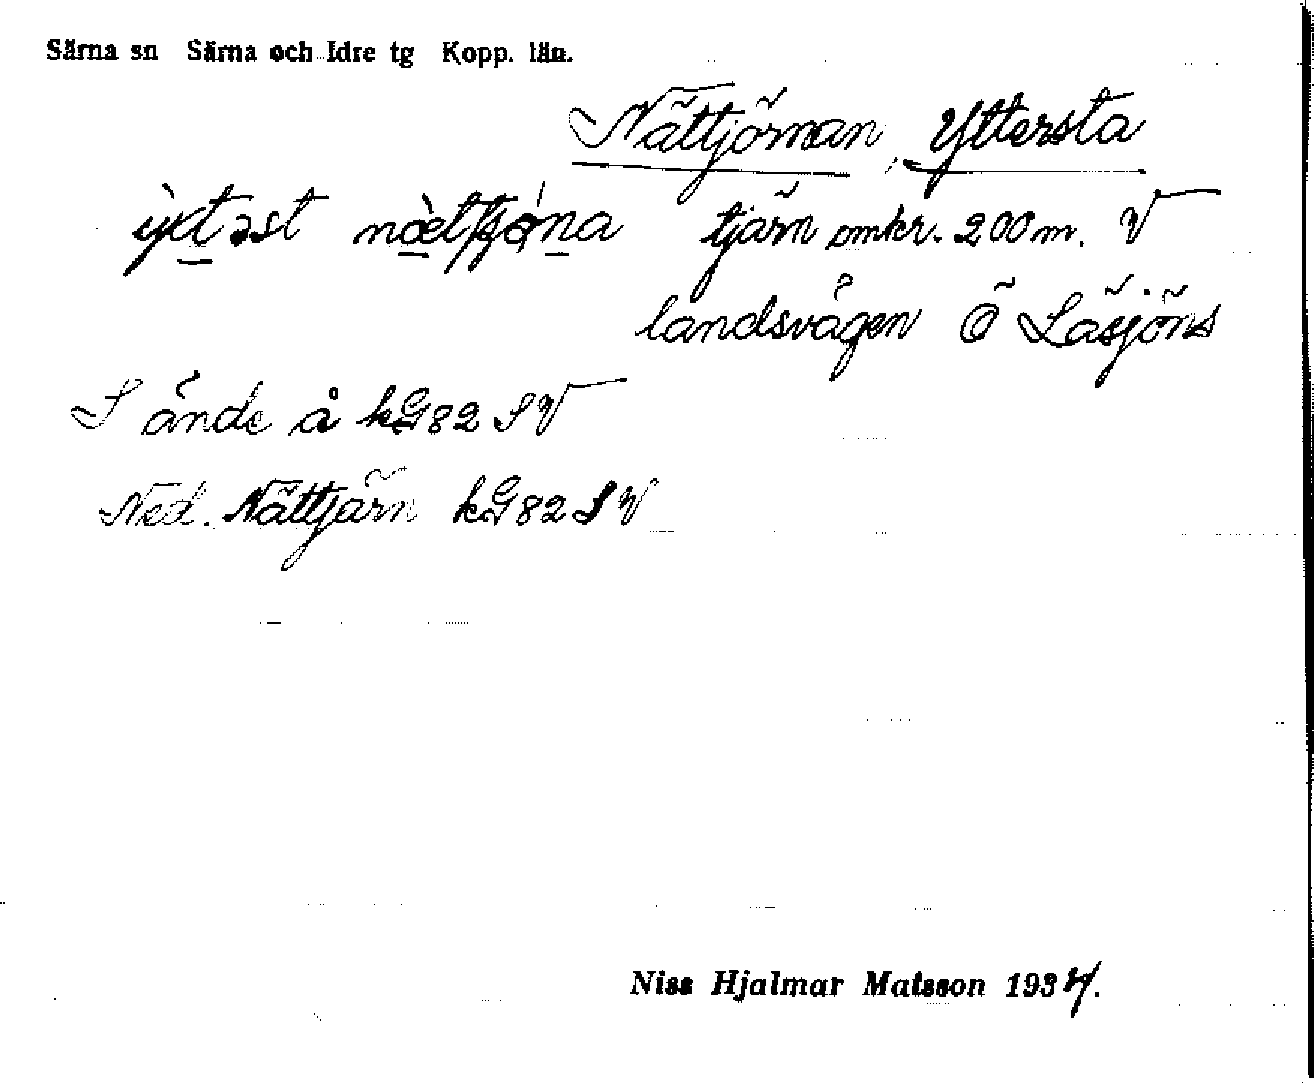 Särna sn Särna och Idre tg Kopp. län.
Nättjörnan, Yttersta
tjärn omkr. 200 m. V
landsvägen Ö Låsjöns
S ände å kG82 SV
Ned. Nättjärn kG82 SV
Niss Hjalmar Matsson 1934.